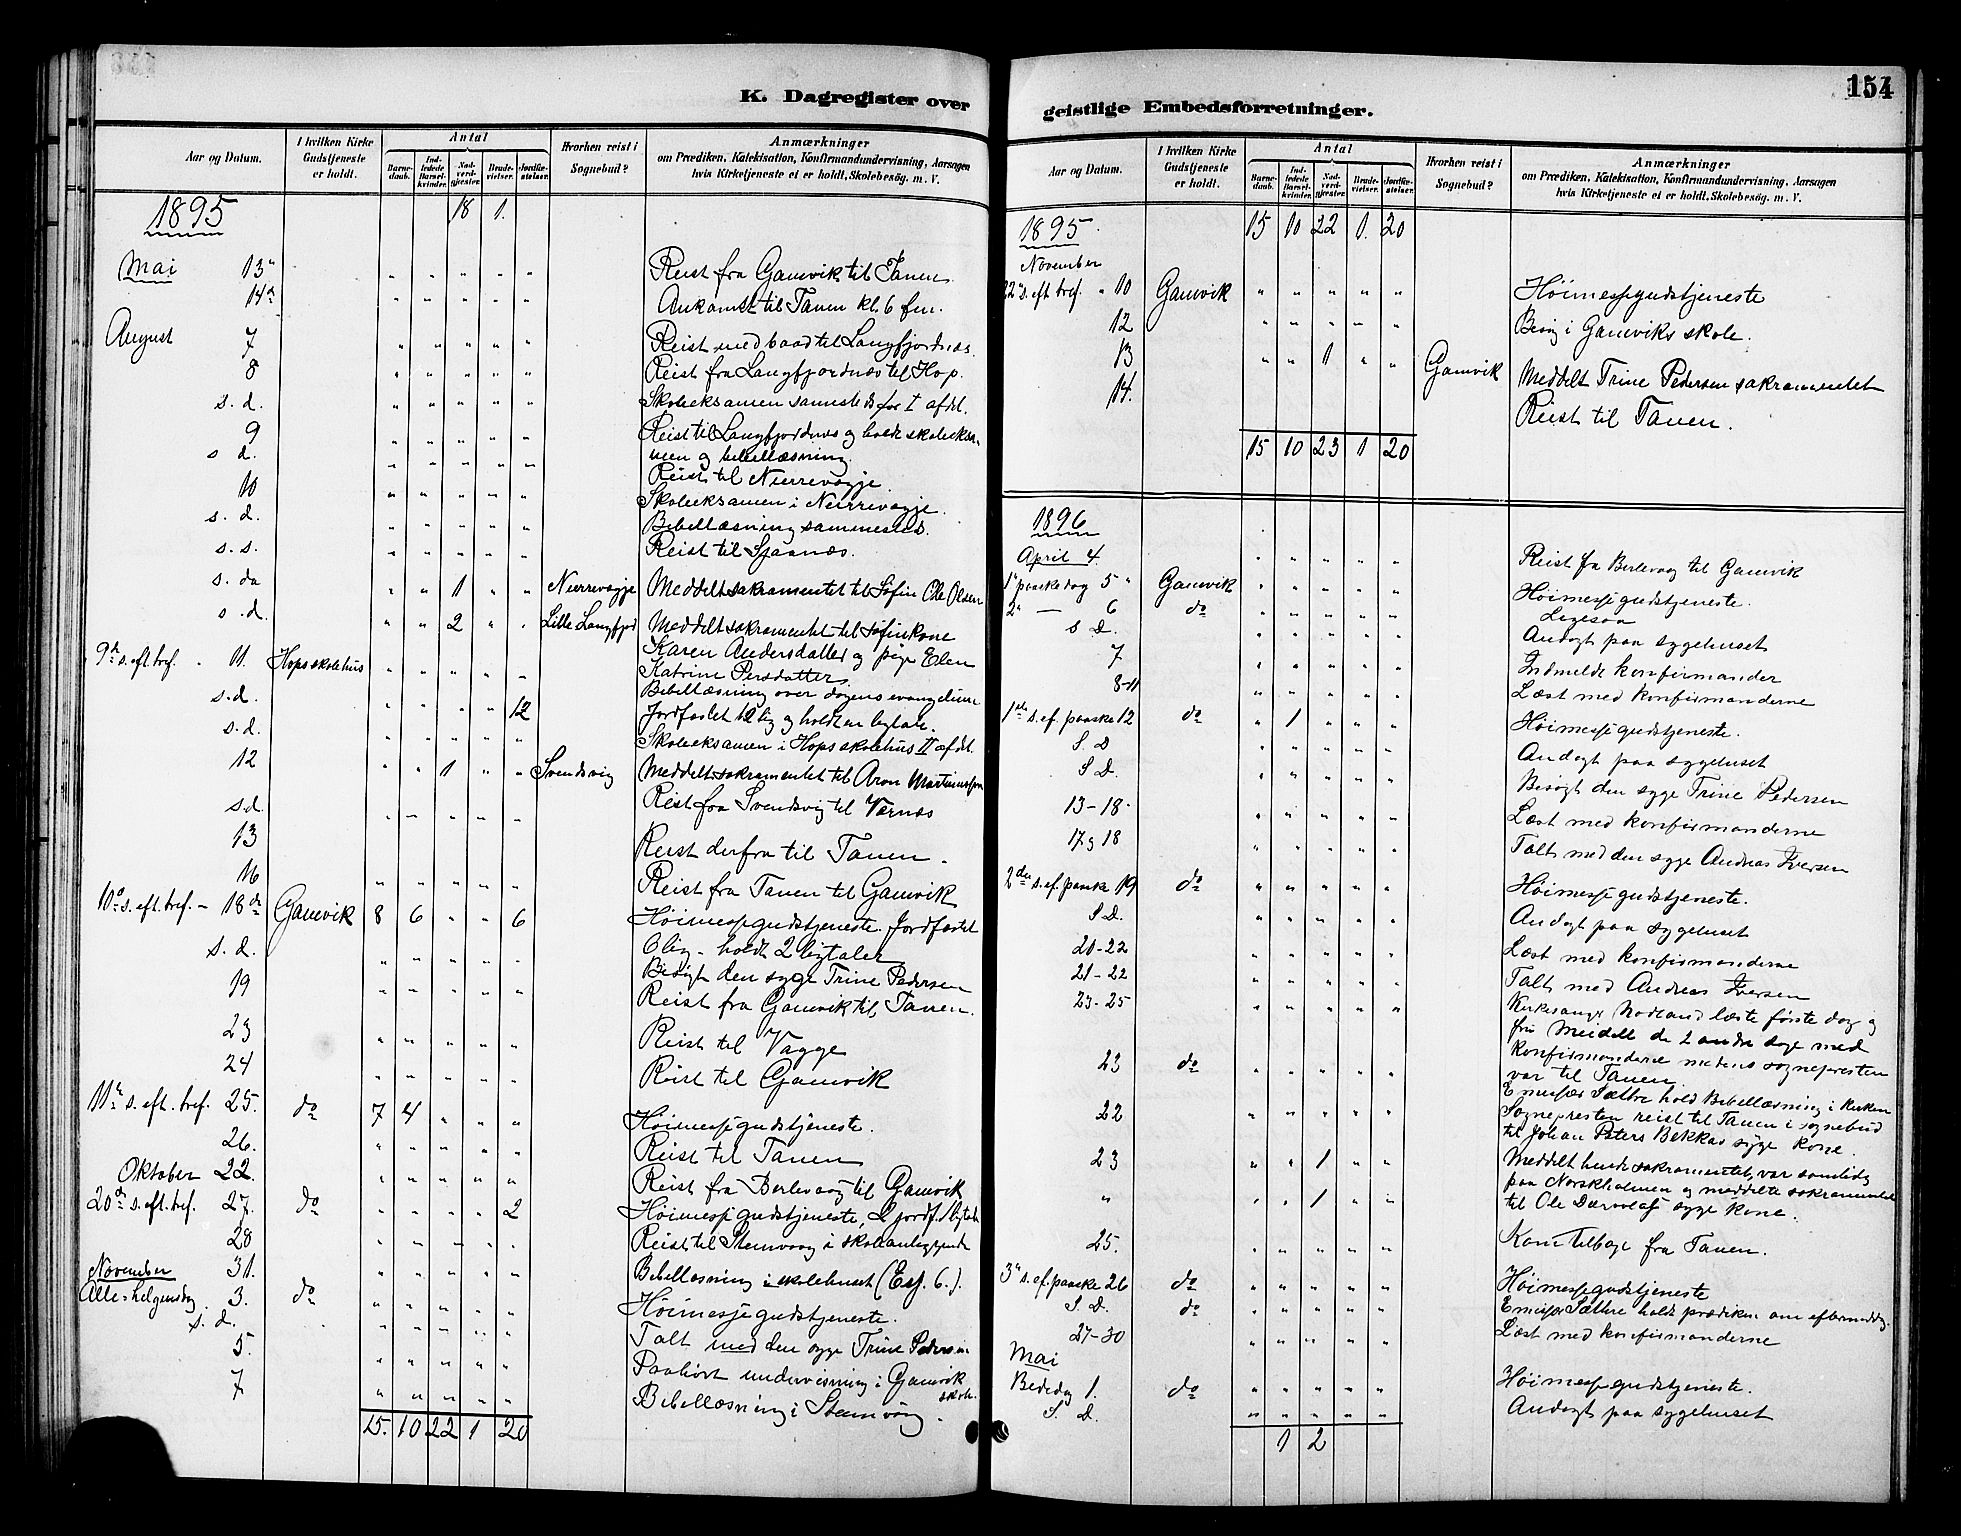 K. Dagregister over
Aar og Datum.
I hvilken Kirke Gudstjeneste er holdt.
Antal
Barnedaab.
Indledede Barselkvinder.
Nadverdgjester.
Brudevielser.
Jordfæstelser.
Hvorhen reist i Sognebud?
Anmærkninger
om Prædiken, Katekisation, Konfirmandundervisning, Aarsagen
hvis Kirketjeneste ei er holdt, Skolebesög. m. V.
1895 18 1.
Mai 13 " " " " " Reist fra Gamvik til Tanen.
14 " " " " " Ankomst til Tanen kl. 6 fm.
August 7 " " " " " Reist med baad til Langfjordnæs.
8 " " " " " Reist fra Langfjordnæs til Hop.
s. d. " " " " " Skoleeksamen sammesteds for I afdel.
9 " " " " " Reist til Langfjordnæs og holdt skoleeksa-
s d. " " " " " men og bibellæsning.
10 " " " " " Reist til Nurrevagje.
s. d. " " " " " Skoleeksamen i Nurrevagje.
" " " " " Bibellæsning sammesteds.
s. s. " " " " " Reist til Sjaanæs.
s. do " " 1 " " Nurrevagje Meddelt sakramentet til Søfin Ole Olsen
s. d. " " 2 " " Lille Langfjord Meddelt sakramentet til søfinkone
Karen Andersdatter og pige Elen
9de s. eft. tref. 11. Hops skolehus " " " " " Katrine Persdatter.
s. d. " " " " 12 Bibellæsning over dagens evangelium
Jordfæstet 12 lig og holdt en ligtale.
s. d. " " " " " Skoleeksamen i Hops skolehus II afdel.
12 " " 1 " " Svendsvig Meddelt sakramentet til Aron Martinussen
s. d. " " " " " Reist fra Svendsvig til Værnæs
13 Reist derfra til Tanen.
16 " " " " " Reist fra Tanen til Gamvik
10de s. eft. tref. - 18de Gamvik 8 6 " " 6 Høimessegudstjeneste. Jordfæstet
s. d. " " " " " 6 lig - holdt 2 ligtaler
19 " " " " " Besøgt den syge Trine Pedersen
Reist fra Gamvik til Tanen.
23 " " " " " Reist til Vagge
24 " " " " " Reist til Gamvik
11te s. eft. tref. 25. do 7 4 " " " Høimessegudstjeneste.
26. " " " " " Reist til Tanen
Oktober 22. " " " " " Reist fra Berlevaag til Gamvik
20de s. eft. tref. 27. do " " " " 2 Høimessegudstjeneste, 2 jordf. 1 ligtale
28 " " " " " Reist til Stenvaag i skoleanliggende
31. " " " " " Bibellæsning i skolehuset (Esj. 6.).
November
Alle-helgensdag 3. do " " " " " Høimessegudstjeneste.
s. d. " " " " " Talt med den syge Trine Pedersen
5. " " " " " Paahørt undervisning i Gamvik skole.
7 " " " " " Bibellæsning i Stenvåg.
15. 10 22 1 20
154
geistlige Embedsforretninger.
Aar og Datum.
I hvilken Kirke Gudstjeneste er holdt.
Antal
Barnedaab.
Indledede Barselkvinder.
Nadverdgjester.
Brudevielser.
Jordfæstelser.
Hvorhen reist i Sognebud?
Anmærkninger
om Prædiken, Katekisation, Konfirmandundervisning, Aarsagen
hvis Kirketjeneste ei er holdt, Skolebesög. m. V.
1895 15 10 22 1. 20
November
22de s. eft. tref. " 10 Gamvik " " " " " Høimessegudstjeneste
12 " " " " " Besøg i Gamviks skole.
13 " " 1 " " Gamvik Meddelt Trine Pedersen sakramentet
14. Reist til Tanen.
15 10 23 1 20
1896
April 4. " " " " " Reist fra Berlevaag til Gamvik
1ste paaskedag 5 " Gamvik " " " " " Høimessegudstjeneste.
2n — 6 do " " " " " Ligesaa
s D. Andagt paa sygehuset
7 " " " " " Indmeldt konfirmander
8-11 " " " " " Læst med konfirmanderne
1ste s. ef. paaske 12 do " 1 " " " Høimessegudstjeneste.
S. D " " " " " Andagt paa sygehuset
S D. " " " " " Besøgt den syge Trine Pedersen
13-18 " " " " " Læst med konfirmanderne
17 og 18 " " " " " Talt med den syge Andreas Iversen
2den s. ef. paaske 19 do " " " " " Høimessegudstjeneste.
S D. " " " " " Andagt paa sygehuset
20-22 " " " " " Læst med konfirmanderne
21-22 " " " " " Talt med Andreas Iversen
23-25 " " " " " Kirkesanger Nodland læste første dag og
fru Meidell de 2 andre dage med
konfirmanderne medens sognepresten
var til Tanen.
23 do " " " " " Emissær Sæthre hold Bibellæsning i kirken
22 " " " " " Sognepresten reist til Tanen i sognebud
til Johan Peters Bekkas syge kone.
23 " " 1 " " Meddelt hende sakramentet, var samtidig
paa Norskholmen og meddelte sakramentet
" " " 1 " " til Ole syge kone.
25. " " " " " Kom tilbage fra Tanen.
3de s. ef. paaske 26 do " " " " " Høimessegudstjeneste
S. D. do " " " " " Emissær Sæthre holdt prædiken om eftermiddag.
27-30 " " " " " Læst med konfirmanderne
Mai
Bededag 1. do " " " " " Høimessegudstjeneste.
S. D. " " " " " Andagt paa sygehuset
1 2